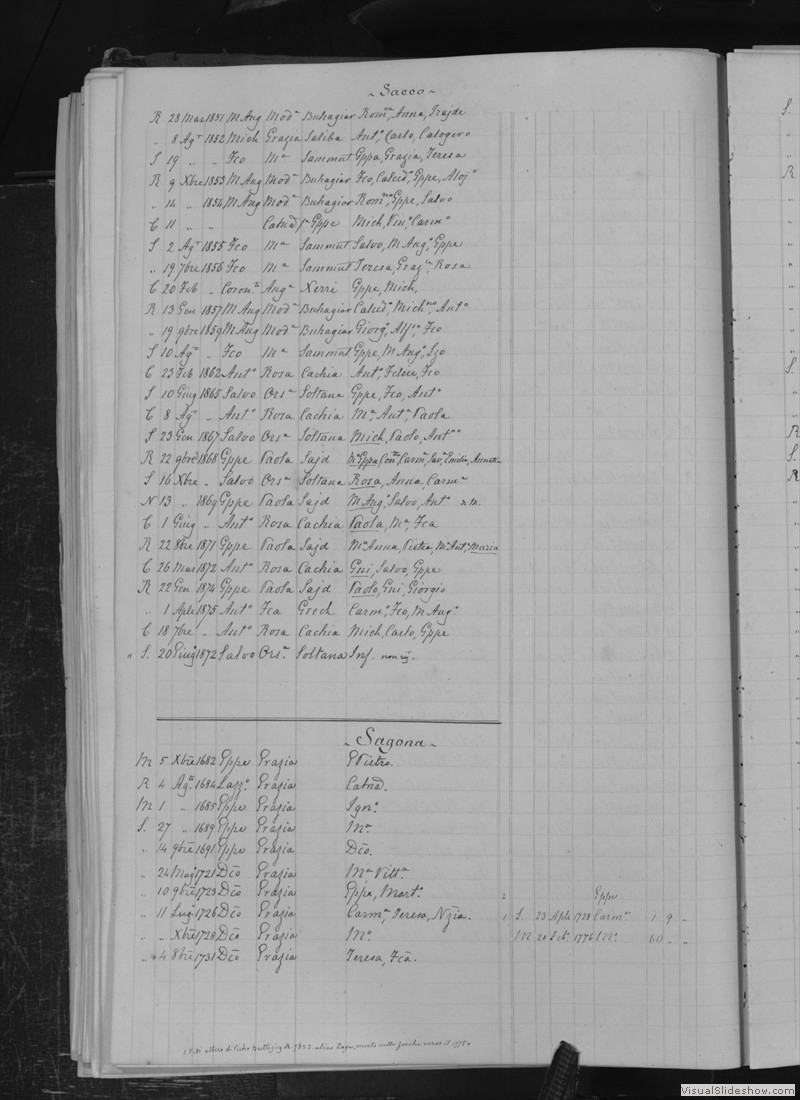 ~ Sacco ~
R 28 Mar 1851 M Ang Mod.a Buhagiar Rom.na, Anna, Najde
" 8 Ag.t 1852 Mich Grazia Saliba Ant.o, Carlo, Calogero
S 19 " " Fco M.a Sammut Gppa, Grazia, Teresa
R 9 Xbre 1853 M Ang Mod.a Buhagiar Fco, Calced.o, Gppe, Aloj.o
" 14 " 1854 M Ang Mod.a Buhagiar Rom.no, Gppe, Salvo
C 11 " " Gppe Mich, Vin.o Carm.o
S 2 Ag.t 1855 Fco M.a Sammut Salvo, M Ang.o, Gppe
" 19 7bre 1856 Fco M.a Sammut Teresa, Graz.a, Rosa
C 20 Feb " Ang.a Xerri Gppe, Mich,
R 13 Gen 1857 M Ang Mod.a Buhagiar Calced.o, Mich, Ant.o
" 19 9bre 1859 M Ang Mod.a Buhagiar Giorg.o, Alf.o, Fco
S 10 Ag.t " Fco M.a Sammut Gppe, M Ang.o, Lzo
C 23 Feb 1862 Ant.o Rosa Cachia Ant.o, Felice, Fco
S 10 Giug 1865 Salvo Ors.a Soltana Gppe, Fco, Ant.o
C 8 Ag.t " Ant.o Rosa Cachia M.a Ant.a, Paola
S 23 Gen 1867 Salvo Ors.a Soltana Mich, Paolo, Ant.no
R 22 9bre 1868 Gppe Paola Sajd M.a Gppa, Con.ta, Carm.a, Sav.a, Emilia, Annetta
S 16 Xbre " Salvo Ors.a Soltana Rosa, Anna, Carm.a
N 13 " 1869 Gppe Paola Sajd M Ang.o, Salvo, Ant.o
C 1 Giug " Ant.o Rosa Cachia Paola, M.a, Fca
R 22 8bre 1871 Gppe Paola Sajd M.a Anna, Pietra, M.a Ant.a, Maria
C 26 Mar 1872 Ant.o Rosa Cachia Gni, Salvo, Gppe
R 22 Gen 1874 Gppe Paola Sajd Paolo, Gni, Giorgio
" 1 Aple 1875 Ant.o Fca Grech Carm.o, Fco, M Ang.o
C 18 7bre " Ant.o Rosa Cachia Mich, Carlo, Gppe
" S. 20 Giug 1872 Salvo Ors.a Soltana Inf.
~ Sagona ~
M 5 Xbre 1682 Gppe Grazia Pietro.
R 4 Ag.to 1684 Lazz.o Grazia Catnā.
M 1 " 1685 Gppe Grazia Ign.o
S. 27 " 1689 Gppe Grazia M.a
" 14 9bre 1691 Gppe Grazia Dco.
" 24 Mag 1721 Dco Grazia M.a Vitt.a
" 10 9bre 1723 Dco Grazia Gppe, Mart.o 2 Gppe
" 11 Lug 1726 Dco Grazia Carm.a, Teresa, Nzia. 1 S. 23 Aple 1728 Carm.a 1 9 "
" " Xbre 1728 Dco Grazia M.a M 20 1776 M.a 60 " "
" 4 8bre 1731 Dco Grazia Teresa, Fca.
VisualSlideshow.com